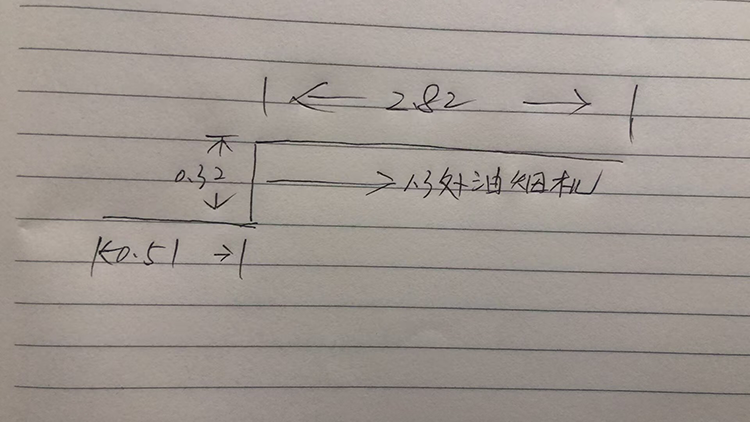 2.82
0.32
1.3处油烟机
0.51